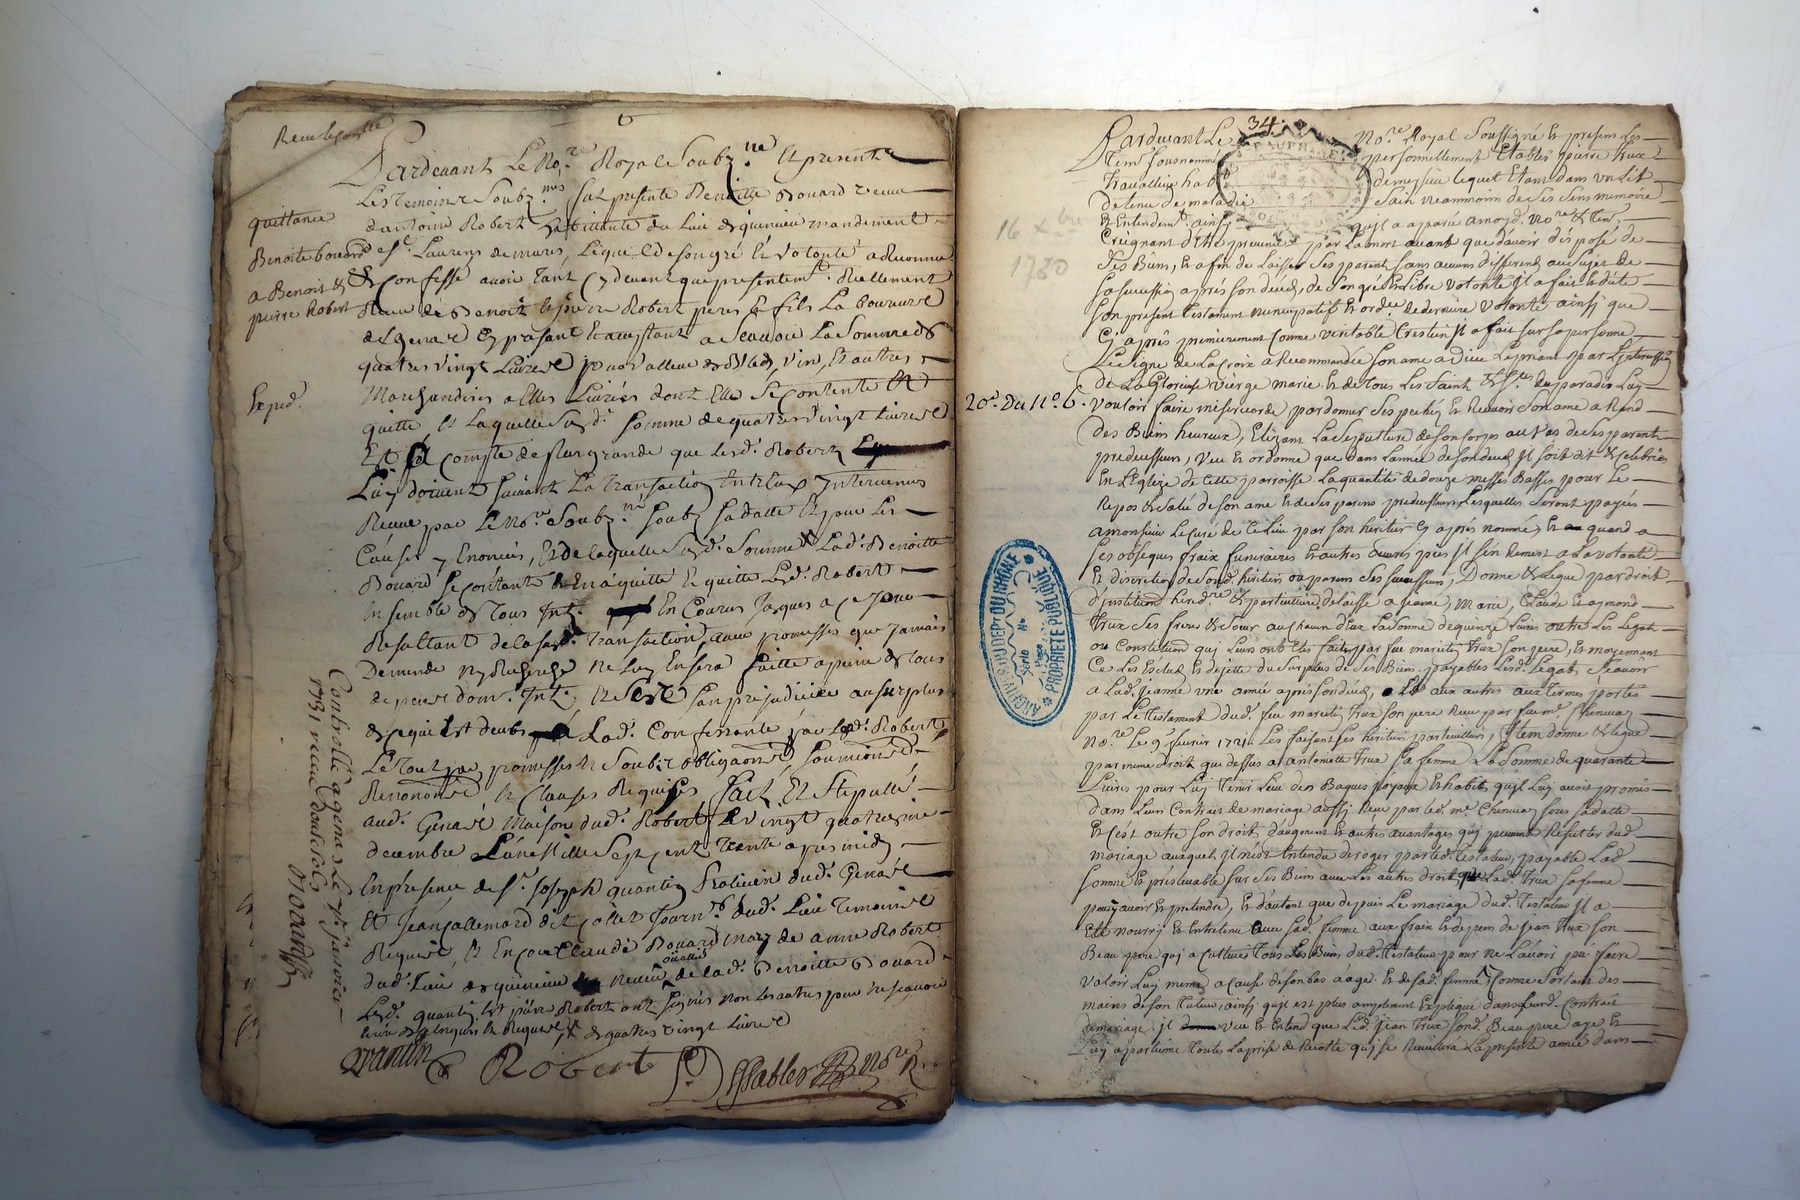 quittance
Benoite bouard
a Benoit &
pierre Robert
Exped.
Pardevant Le No.re Royal Soubz.ne Et presents
Les temoins Soubz.nés fut presente Benoitte Bouard veuve
d'antoine Robert habittante du Lieu de quinieu mandement
de S.t Laurens de mures, Lequelle de son gré Et volonté a Reconnu
& Confessé avoir tant Cy devant que presentem.t Reellement
Receu de Benoit & pierre Robert pere & fils Laboureurs
de Genas Cy present Et acceptant a scavoir La Somme de
quatre vingt Livres pour valleur de Bled, vin, Et autres
Marchandises a Elles Livrées dont Elle Se Contente Et
quitte Et Laquelle Susd. Somme de quatre vingt Livres
Est a Compte de plus grande que Lesd. Robert
Luy doivent suivant La transaction Entr'eux Intervenue
Receue par Le No.re Soubz.né Soubz Sa datte Et pour Les
Causes y Enoncées, Et de laquelle Susd. Somme Lad. Benoitte
Bouard Se Contante En a quitté Et quitte Lesd. Robert
Ensemble de tous Int. En Courus Jusques a Ce Jour
Resultant de la susd. Transaction, avec promesses que Jamais
Demande Ny Recherche Ne Luy En sera faitte a peine de tous
depens dom. Int. Et C'est sans prejudicier au surplus
de Ce qui Est deub a Lad. Confessante par Lesd. Robert
Le Tout par promesses Soubz obligaons Soumions
Renonons Et Clauses Requises fait Et Stipullé
aud. Genas Maison dud. Robert Le vingt quatrieme
decembre L'an Mille Sept Cent Trente apres midy
En presence de S.r Joseph quantin praticien dud. Genas
Et Jean allemand dit Collet Journ. dud. Lieu Temoins
Requis, Et Encore Claude Bouard mary de anne Robert
dud. Lieu de quinieu Neveu de Lad. Benoitte Bouard
Lesd. quantin Et pierre Robert ont signés Non Les autres pour ne sçavoir
de quatre vingt Livres
quantin Robert Essables No.re R.
Controllé a genas Le
1731 receu douse sols
34.
16 xbre
1730
20.e Du N.o 6.
ARCHIVES DU DEPt DU RHÔNE
Série
No
PROPRIÉTÉ PUBLIQUE
Pardevant Le No.re Royal Soussigné Et presens Les
tem. sousnommés personnellement Etably pierre Trux
travalleur hab. de messieu lequel Etant dans un Lit
detenu de maladie Sain neanmoins de ses sens memoire
Et Entendem.t ainsy qu'il a aparu a moyd. No.re & Tem.
Creignant d'Etre prevenu par La mort avant que d'avoir disposé de
Ses Biens, Et afin de Laisser Ses parents sans aucuns differend au sujet de
Sa succession après son decéd, de son gré Et Libre volonté Il a fait Et dicté
Son present testament nuncupatif Et ord.re de derniere volonté ainsy que
Cy après premierement Comme veritable Crestien Il a fait sur sa personne
Le signe de La Croix a Recommandée son ame a dieu Le priant par
de La Glorieuse vierge marie Et de tous Les Saints & S.tes du paradis Luy
vouloir faire misericorde pardonner Ses pechés Et Recevoir Son ame a Rend
des Bien heureux, Elisant La Sepulture de son Corps au Vas de Ses parents
predecesseurs, Veu Et ordonne que dans L'année de son deced Il soit dit & Celebrée
En L'Eglize de Cette parroisse La quantité de douze messes Basses pour Le
Repos & salut de son ame Et de Ses parens predecesseurs Lesquelles Seront payées
a monsieur Le Curé de Ce Lieu par Son heritier Cy après nommé, Et quand a
Ses obseques fraix funeraires Et autres œuvres pies Il s'en Remet a La volonté
Et discretion de Sond. heritier ou parens Ses Successeurs, Donne & Legue par droit
d'institution hered.re & particulière delaissé a Jeanne, Marie, Claude
Trux Ses freres & Soeur au Chacun d'Eux La Somme de quinze Livres outre Les Legats
ou Constitution qui Leurs ont Eté faits par feu Trux Son pere, Et moyennant
Ce Les Exclud & dejette du Surplus de Ses Biens, payables Lesd. Legats, sçavoir
a Lad. Jeanne une année après Son deced, Et aux autres aux Termes portés
par Le Testament dud. feu Trux Son pere Receu par feu m.e
No.re Le 9.e fevrier 1721. Les faisant Ses heritiers particuliers, Item donne & Legue
par meme droit que dessus a antoinette Trux Sa femme La Somme de quarante
Livres pour Luy Tenir Lieu des Bagues Joyaux Et habits qu'il Luy avoit promis
dans Leur Contrait de mariage aussy Receu par led. m.e Sous Sa datte
Et c'est outre Son droit d'augment Et autres avantages qui peuvent Resulter dud.
mariage auxquel Il n'est Entendu deroger par led. Testateur, payable Lad.
Somme Et prelevable sur Ses Biens avec Les autres droits que Lad. Trux Sa femme
pouvoit avoir Et pretendre, Et d'autant que depuis Le mariage dud. Testateur Il a
Eté nourry & Entretenu avec Sad. femme aux fraix Et depens de Jean Trux Son
Beau pere qui a Cultivé Tous Les Biens dud. Testateur pour ne L'avoir pû faire
valoir Luy meme a Cause de Son bas âage Et de Sad. femme, Comme Sortant des
mains de Son Tuteur, ainsy qu'il est plus amplement Expliqué dans Leurd. Contrait
de mariage, Il veu Et Entend que Led. Jean Trux Sond. Beau pere aye Et
Luy appartienne Toutes La prise de Recolte qui se Recuillera La presente année dans